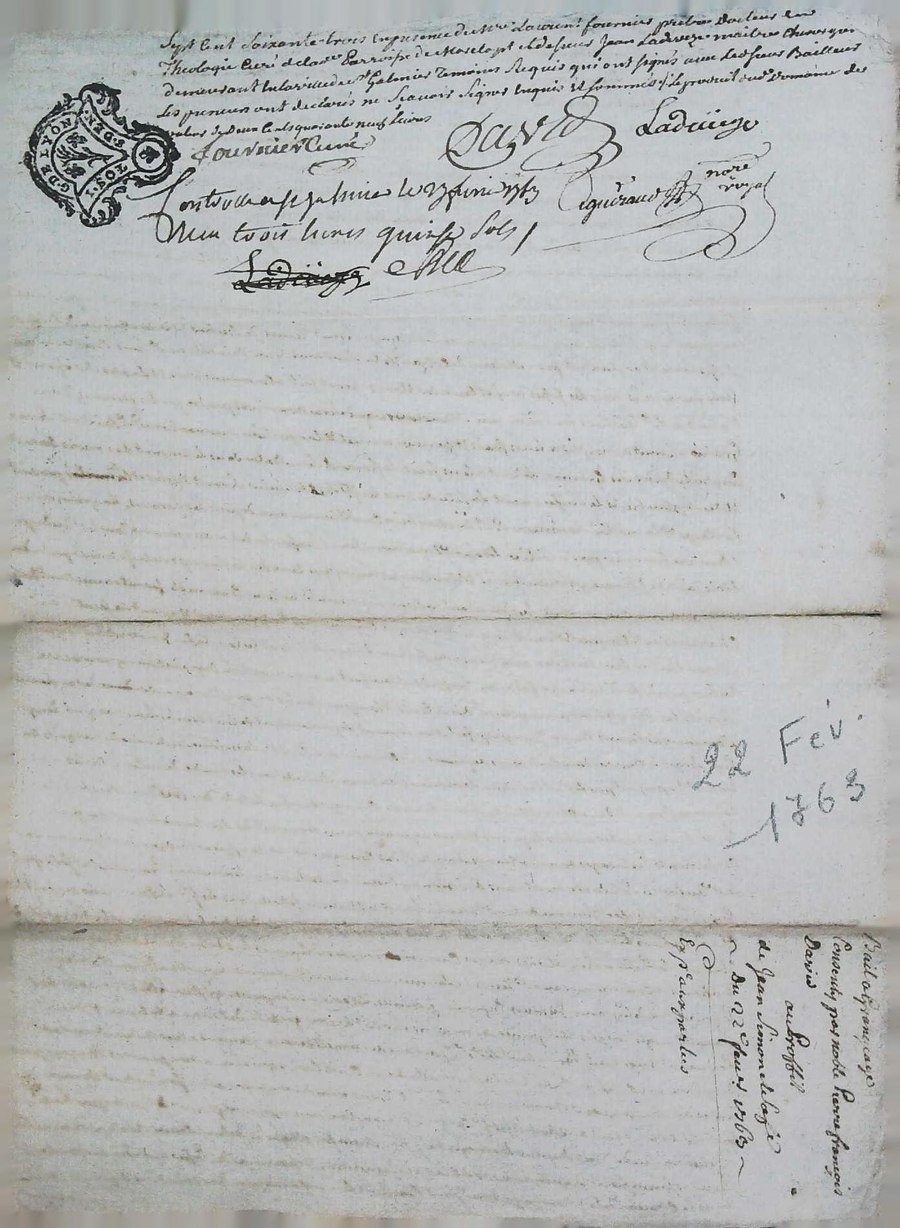 Sept Cent Soixante trois En presence de Mre Laurent fournier prêtre Docteur en
Theologie Curé de la Parroisse de et de Sieur Jean Ladeveze maître Chirurgien
demeurant En la ville de St Galmier Temoins Requis qui ont signés avec le dit sieur Bailleur
Les preneurs ont declarés ne sçavoir signer enquis et sommés le produit du domaine de
valeur de Deux Cents quarante neuf Livres
GG DE LYON
5 DEN
TOS
fournier Curé
David
Ladeveze
Controllé a St Galmier le 27 fevrier 1763
nore
royal
Reçu trois livres quinze sols
22 Fév.
1763
Bail a Grangeage
Consenty par noble Pierre françois
David
au Proffit
de Jean Simon
Du 22e fever 1763
Expé aux parties